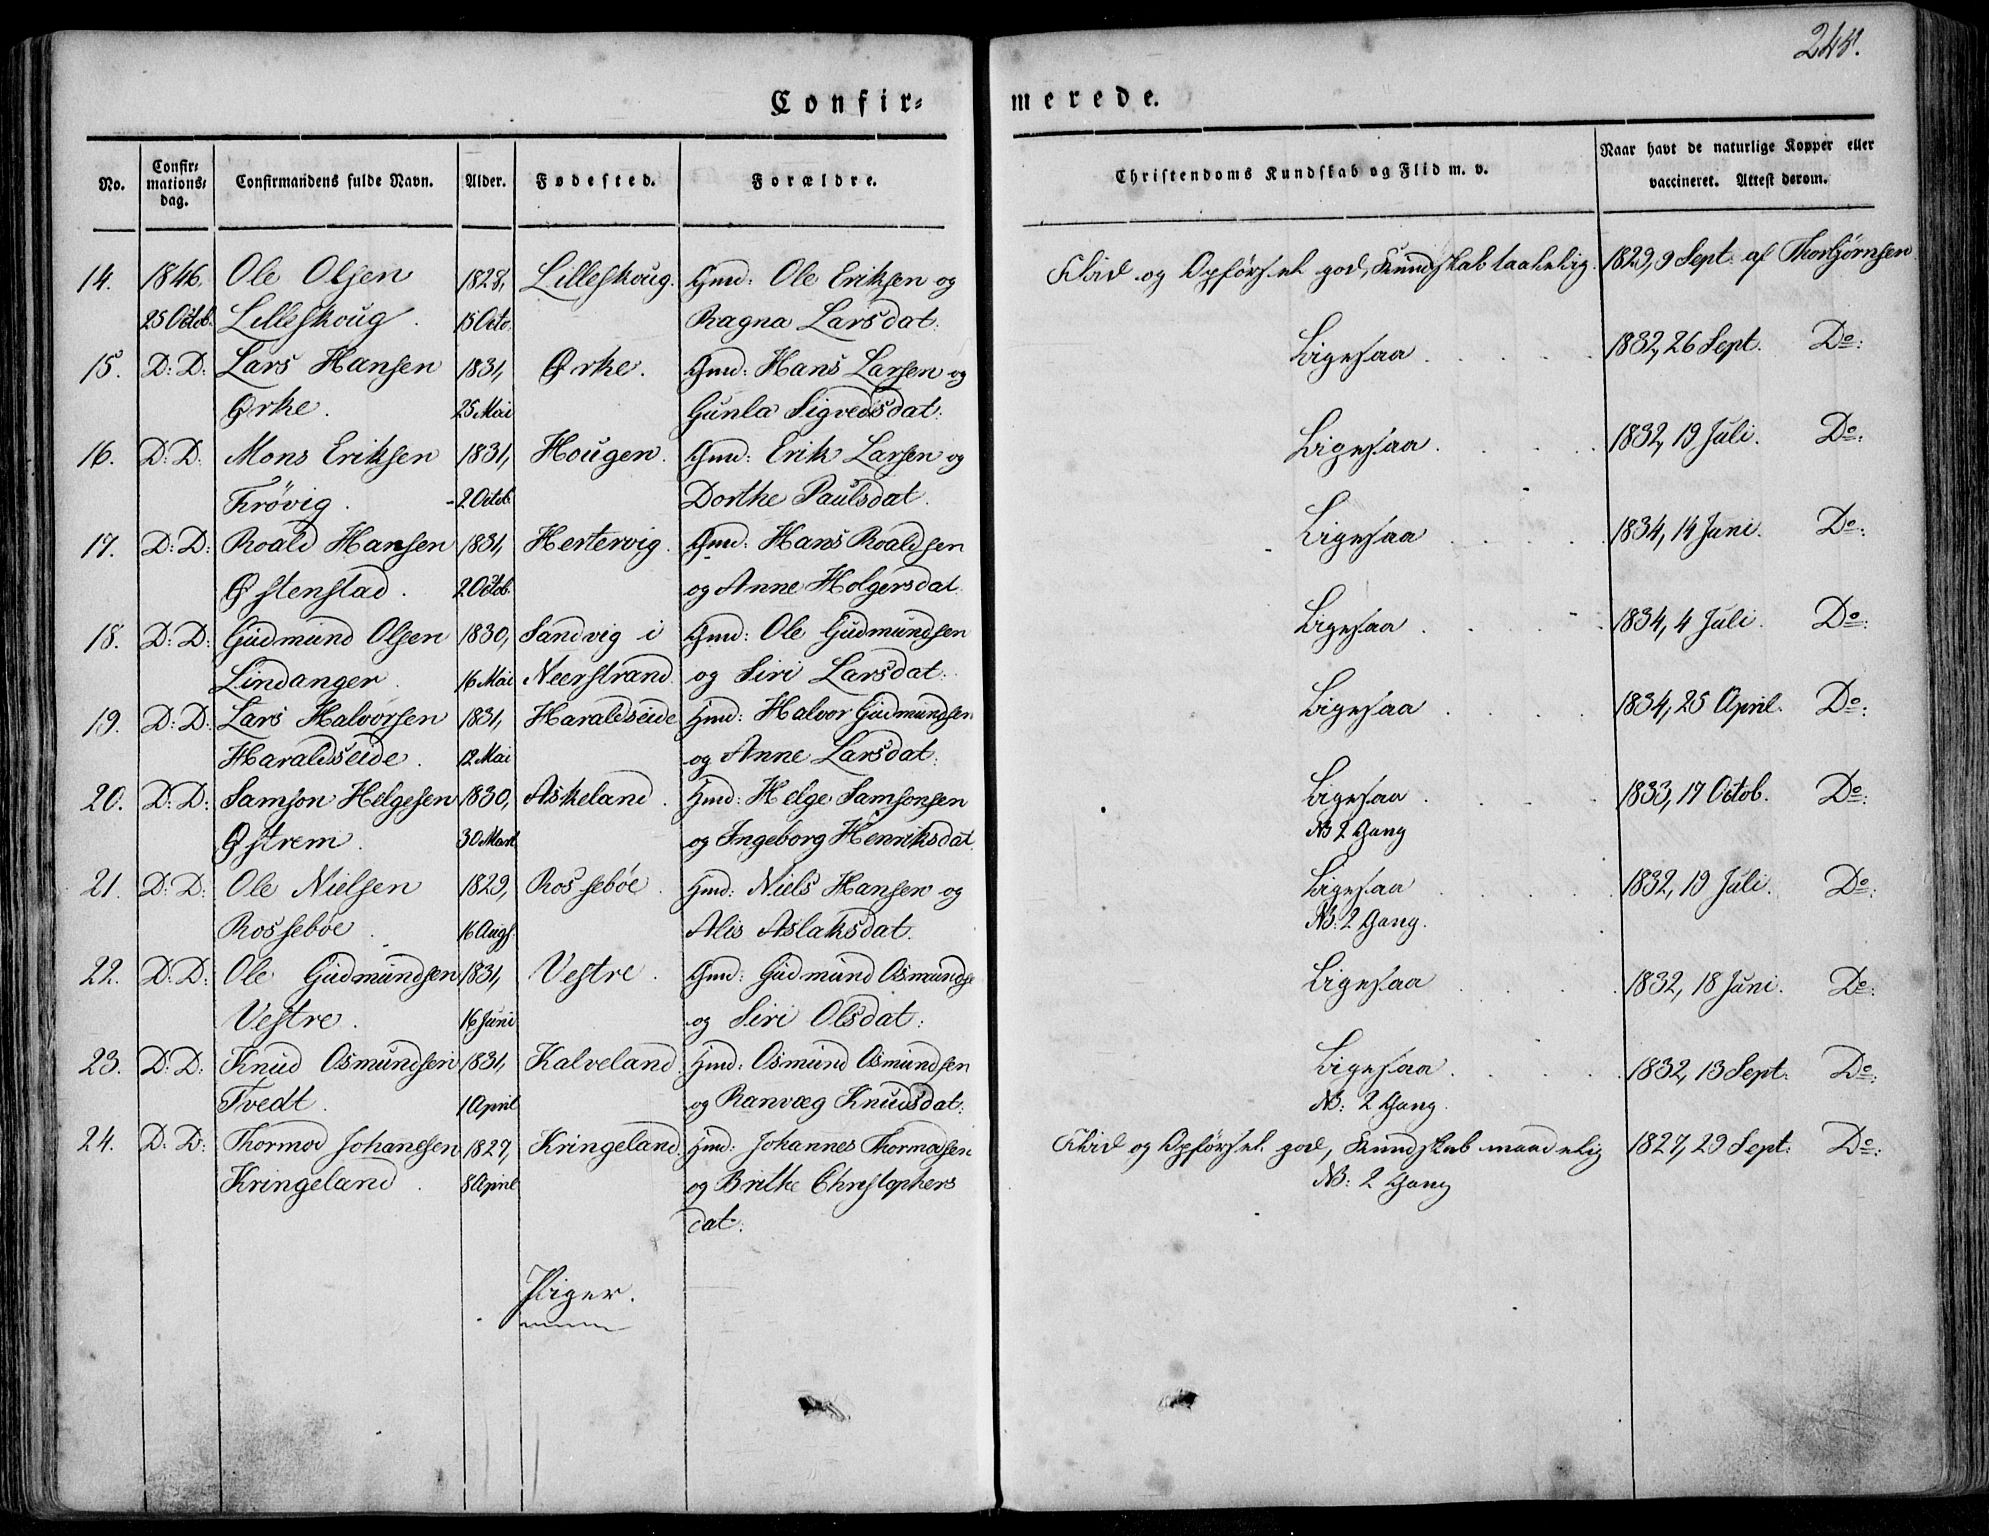 248.
Confir=
merede.
No.
Confir=
mations=
dag.
Confirmandens fulde Navn.
Alder.
Fødested.
Forældre.
Christendoms Kundskab og Flid m. v.
Naar havt de naturlige Kopper eller
vaccineret. Attest derom.
14. 1846, Ole Olsen 1828, Lilleskoug. Gmd: Ole Eriksen og Flid og Opførsel god, Kundskab taalelig. 1829, 9 Sept. af Thorbjørnsen
25 Octob. Lilleskoug. 15 Octo. Ragna Larsdat:
15. D: D: Lars Hansen 1831, Ørke. Gmd: Hans Larsen og Ligesaa . . . . 1832, 26 Sept. Do:
Ørke. 25 Mai Gunla Sigvedsdat:
16. D: D: Mons Eriksen 1831, Hougen. Gmd: Erik Larsen og Ligesaa . . . . 1832, 19 Juli. Do:
Frøvig. 2 Octob. Dorthe Paulsdat.
17. D: D: Roald Hansen 1831, Hertervig. Gmd: Hans Roaldsen Ligesaa . . . . 1834, 14 Juni. Do:
Østenstad. 2 Octob. og Anne Holgersdat.
18. D: D: Gudmund Olsen 1830, Sandvig i Gmd: Ole Gudmundsen Ligesaa . . . . 1834, 4 Juli. Do:
Lindanger. 16 Mai Neerstrand. og Siri Larsdat:
19. D: D: Lars Halvorsen 1831, Haraldseide Hmd: Halvor Gudmundsen Ligesaa . . . . 1834, 25 April. Do:
Haraldseide. 12 Mai og Anne Larsdat:
20. D: D: Samson Helgesen 1830, Askeland. Hmd: Helge Samsonsen Ligesaa . . . . 1833, 17 Octob. Do:
Østrem. 30 Marts og Ingeborg Henriksdat. NB 2 Gang
21. D: D: Ole Nielsen 1829, Rossebøe. Hmd: Niels Hansen og Ligesaa . . . . 1832, 19 Juli. Do:
Rossebøe. 16 Augs. Alis Aslaksdat. NB: 2 Gang.
22. D: D: Ole Gudmundsen 1831, Vestre. Gmd: Gudmund Osmundse Ligesaa . . . . 1832, 18 Juni. Do:
Vestre. 16 Juni og Siri Olsdat:
23. D: D: Knud Osmundsen 1831, Kalveland Hmd: Osmund Osmundsen Ligesaa . . . . 1832, 13 Sept. Do:
Tvedt. 1 April og Ranvæg Knudsdat: NB: 2 Gang.
24. D: D: Thormod Johanesen 1827, Kringeland Hmd: Johannes Thormodsen Flid og Opførsel god, Kundskab maadelig 1827, 29 Sept: Do:
Kringeland. 8 April og Brithe Christophers NB: 2 Gang
dat:
Piger.